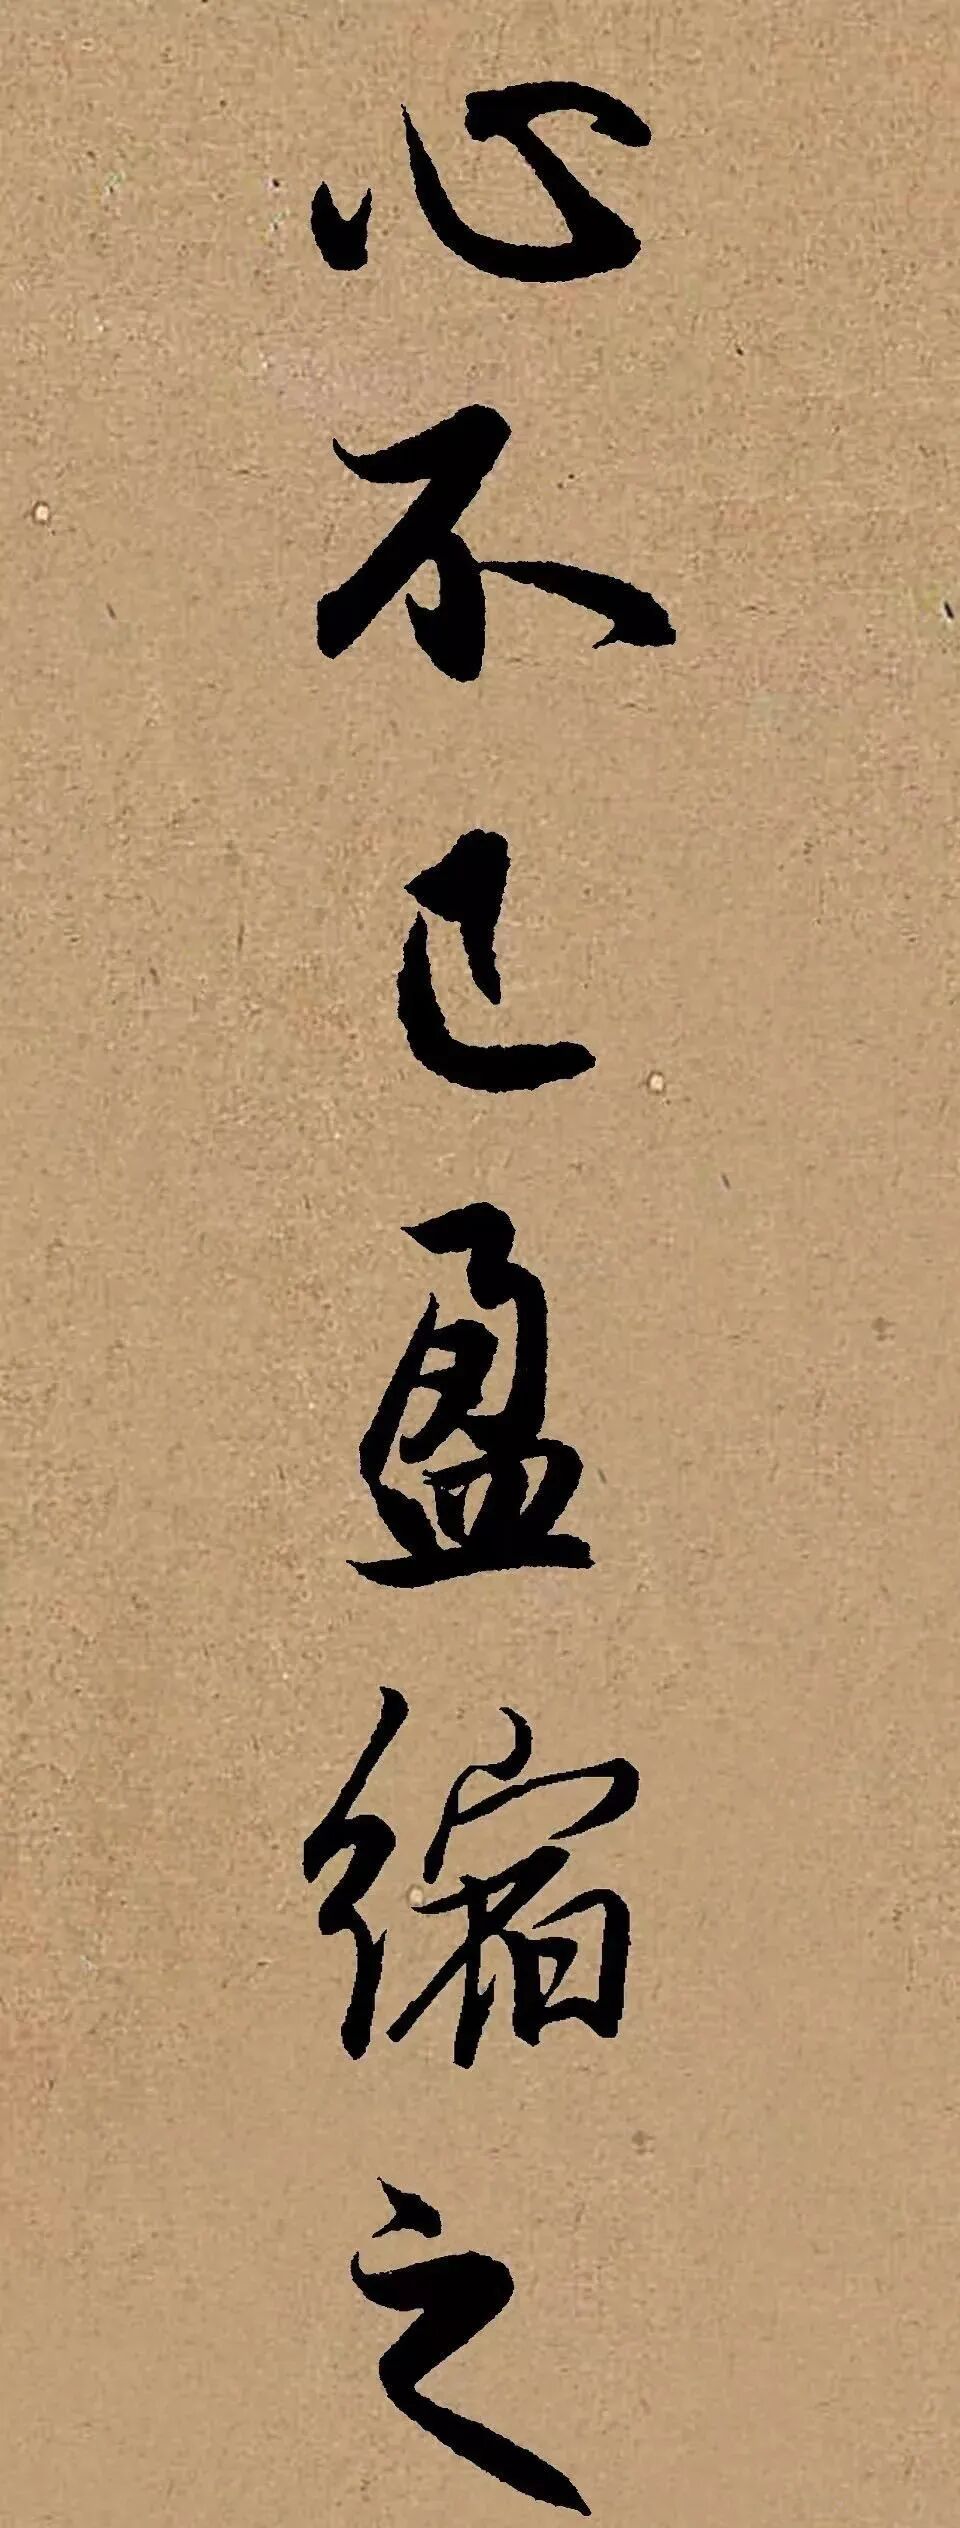 心不已盈縮之